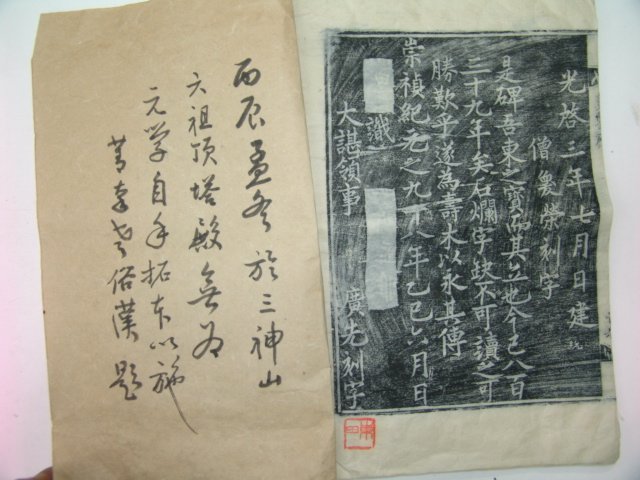 光啓三年七月日建
僧奐榮刻字
是碑吾東之寶而其立地今已八百
三十九年矣石爛字缺不可讀之可
勝歎乎遂為壽木以永其傳
崇禎紀元之九十八年乙巳六月日
識
大諶領事 廣先刻字
丙辰孟冬於三神山
六祖頂塔殿無為
元学自手拓本以
俗漢 題